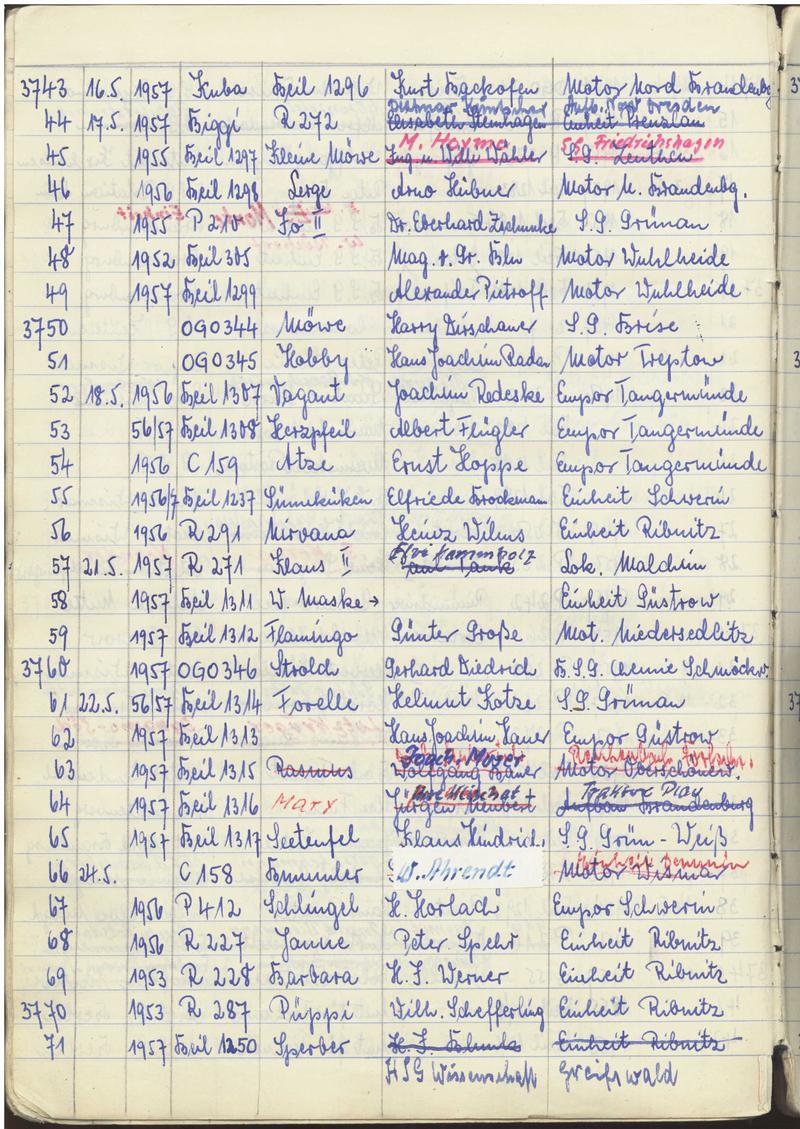 3743 16.5. 1957 Kuba Beil 1296 Kurt Backofen Motor Nord Brandenbg
Aufb. Dresden
44 17.5. 1957 Biggi R 272 Elisabeth Steinhagen Einheit Prenzlau
M. Hoyme SG Friedrichshagen
45 1955 Beil 1297 Kleine Möwe Ing. u. Wilh. Wähler S.G. Leuthen
46 1956 Beil 1298 Serge Arno Hibner Motor N. Brandenbg.
47 1955 P 210 Jo II Dr. Eberhard S.G. Grünau
48 1952 Beil 305 Mag. v. Gr. Bln Motor Wuhlheide
49 1957 Beil 1299 Alexander Pietroff Motor Wuhlheide
3750 OGO344 Möwe Harry Dirschauer S.G. Brise
51 OGO345 Hobby Hans Joachim Radan Motor Treptow
52 18.5. 1956 Beil 1307 Vagant Joachim Redeske Empor Tangermünde
53 56/57 Beil 1308 Herzpfeil Albert Flügler Empor Tangermünde
54 1956 C 159 Atze Ernst Hoppe Empor Tangermünde
55 1956/7 Beil 1237 Sünnküken Elfriede Brockmann Einheit Schwerin
56 1956 R 291 Nirvana Heinz Wilms Einheit Ribnitz
57 21.5. 1957 R 271 Klaus II Lok. Malchin
58 1957 Beil 1311 W. Maske → Einheit Güstrow
59 1957 Beil 1312 Flamingo Günter Große Mot. Niedersedlitz
3760 1957 OGO346 Strolch Gerhard Diedrich B.S.G. Chemie Schmöckw.
61 22.5. 56/57 Beil 1314 Forelle Helmut Kotze S.G. Grünau
62 1957 Beil 1313 Hans Joachim Hauer Empor Güstrow
Joach. Moser
63 1957 Beil 1315 Rasmus Wolfgang Bauer Motor Oberschönew.
Traktor Plau
64 1957 Beil 1316 Mary Jürgen Neubert Aufbau Brandenburg
65 1957 Beil 1317 Seeteufel Klaus Hindrich. S.G. Grün-Weiß
Einheit Demmin
66 24.5. C 158 Brummler W. Ahrendt Motor Wismar
67 1956 P 412 Schlingel H. Horlach Empor Schwerin
68 1956 R 227 Janne Peter Spehr Einheit Ribnitz
69 1953 R 228 Barbara H. J. Werner Einheit Ribnitz
3770 1953 R 287 Püppi Wilh. Schefferling Einheit Ribnitz
71 1957 Beil 1250 Sperber H. J. Einheit Ribnitz
HSG Wissenschaft Greifswald